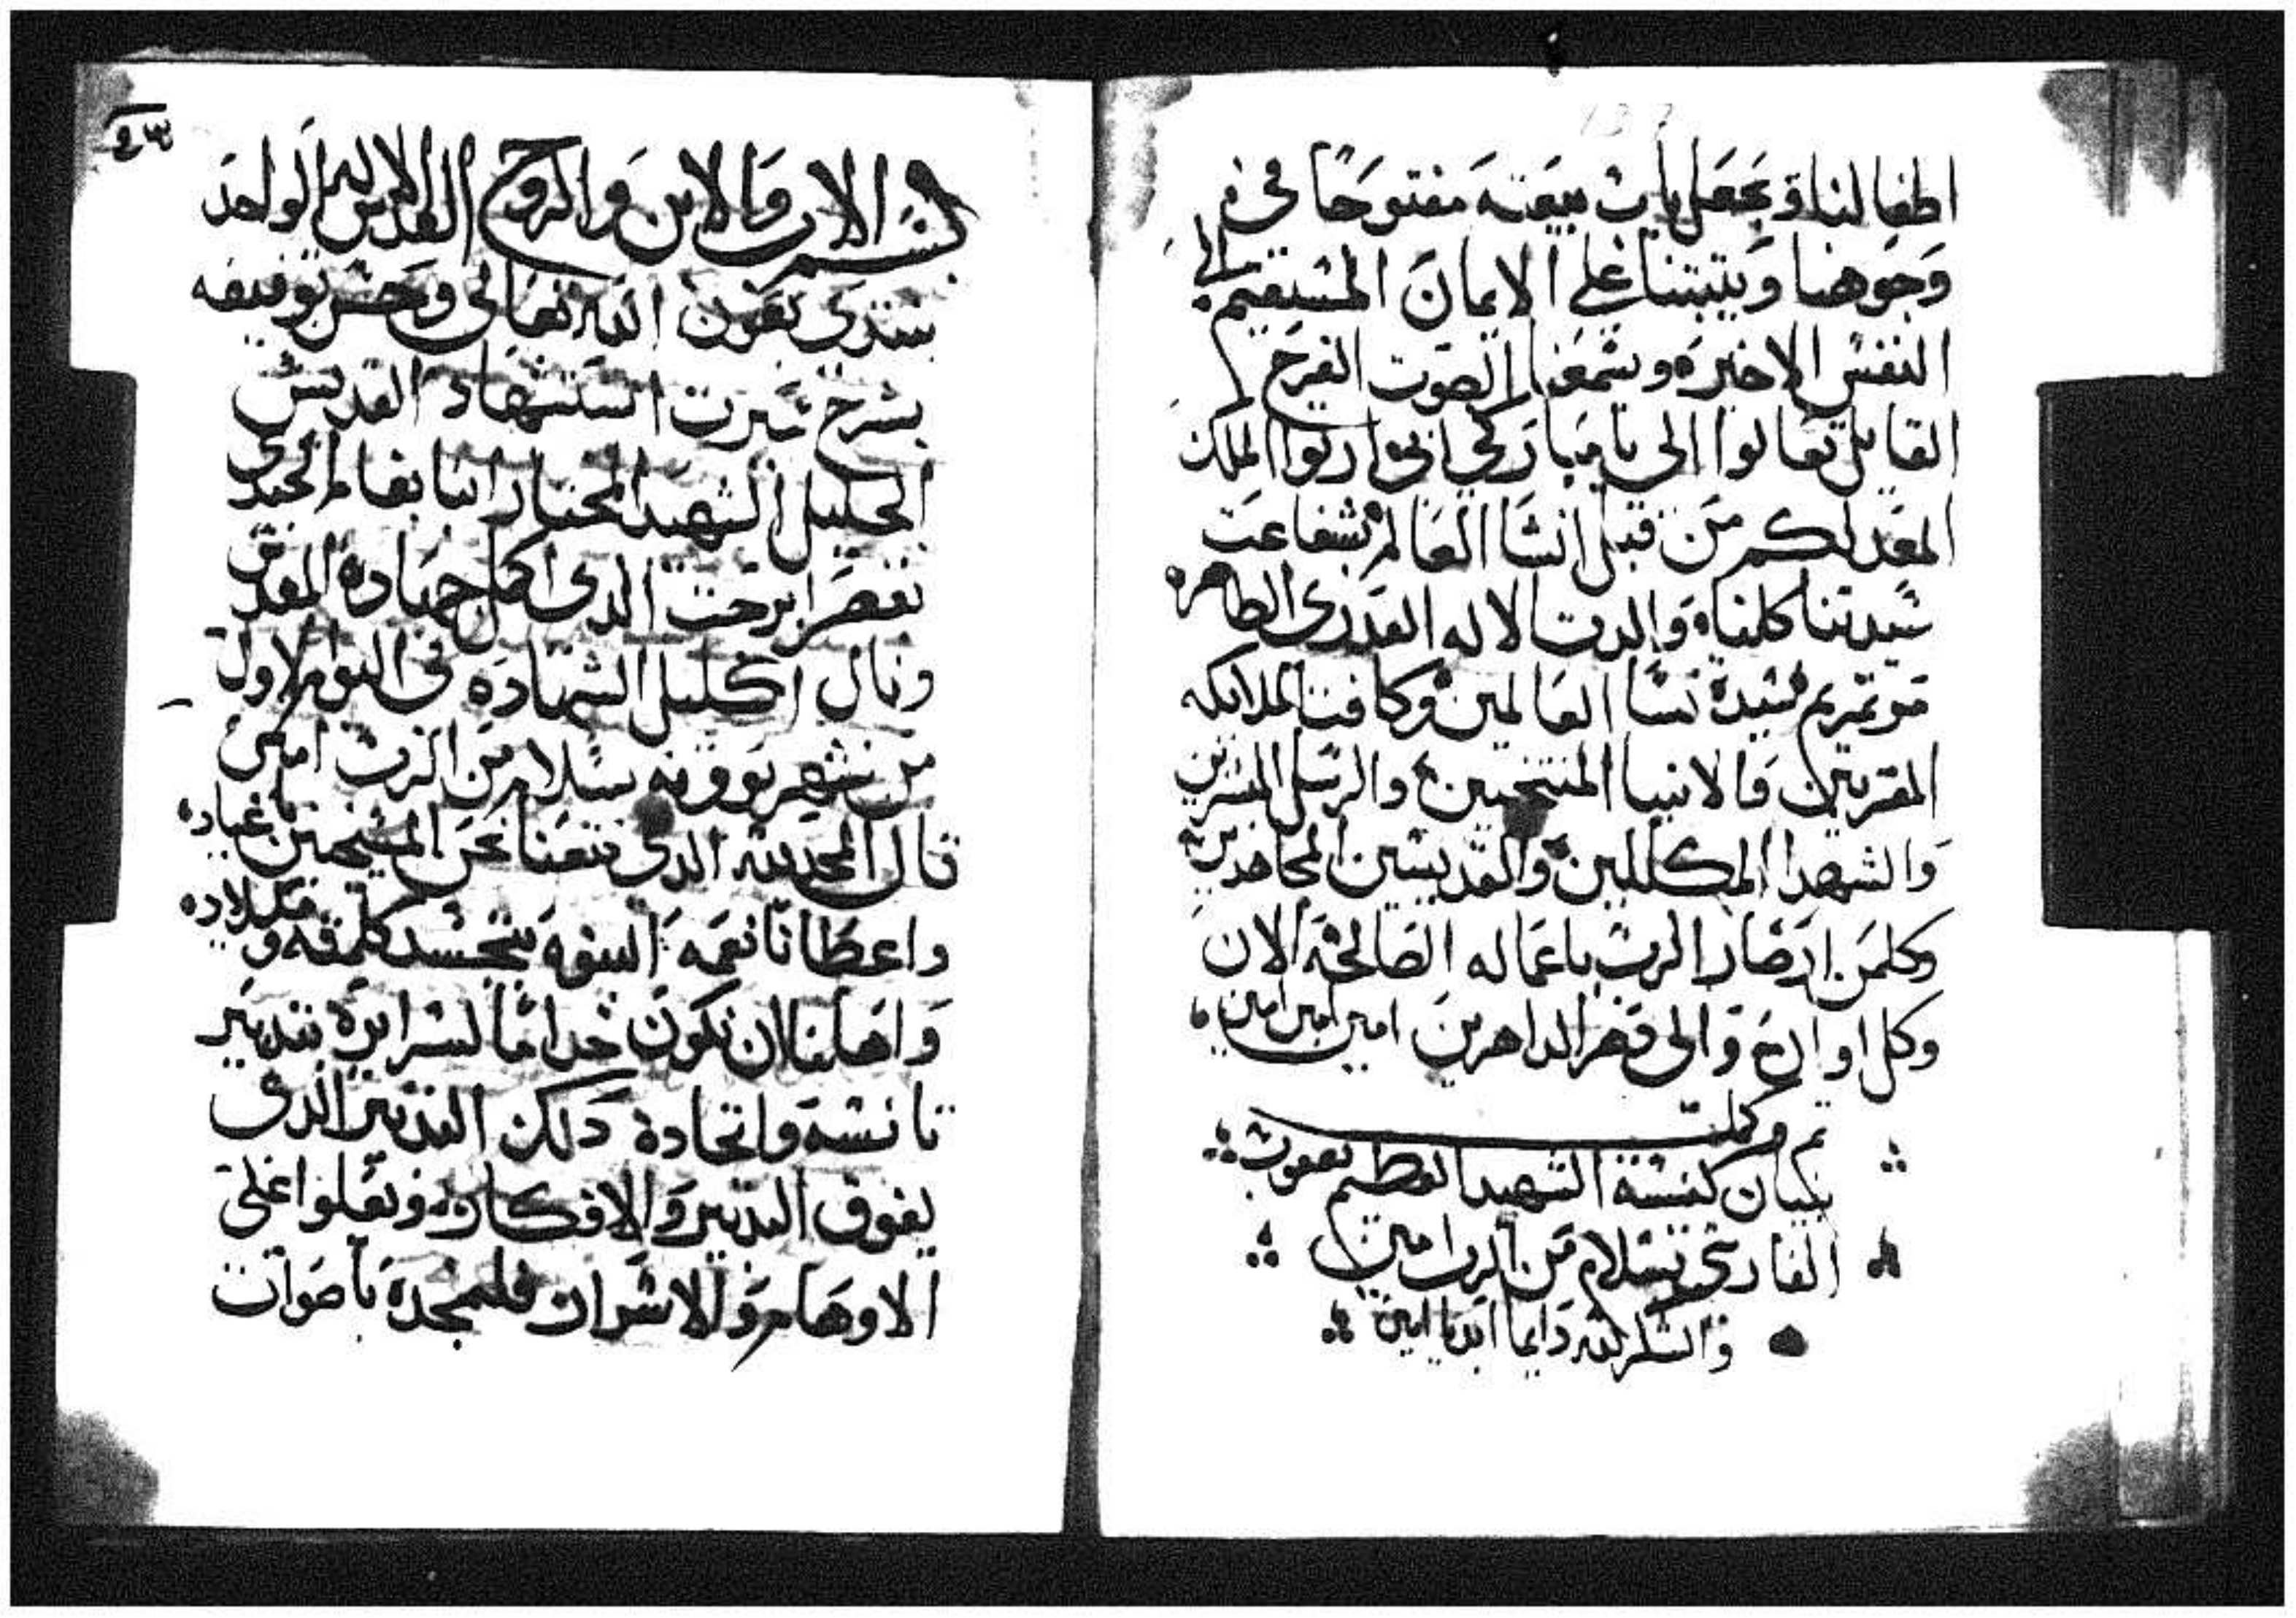 اطفالناة ويجعل باب بيعته مفتوحًا في
وجوهنا ويتبتنا علي الايمان المستقيم الي
النفس الاخيره ويسمعنا الصوت الفرح
القايل تعالوا الي يا مباركي ابي ارتوا الملك
المعد لكم من قبل انشا العالم بشفاعت
سيدتنا كلناة والدت الاله العدري الطاهره
مرتمريم سيدة نسا العالمين وكافت الملايكه
المقربين والانبيا المنتخبين والرسل المبشرين
والشهدا المكللين والقديسين المجاهدين
وكلمن ارضا الرب باعماله الصالحة الان
وكل اوان والي دهر الداهرين امين امين امين
تم وكملت
بنيان كنيسة الشهيد العظيم يعقوب
الفارسي بسلام من الرب امين
والشكر لله دايما ابديا امين
بسم الاب والابن والروح القدس الاله الواحد
نبتدي بعون الله تعالي وحسن توفيقه
بشرح سيرت استشهاد القديس
الجليل الشهيد المختار انبا بفام الجندي
نفصر ابرحت الدي اكمل جهادة المقدس
ونال اكليل الشهادة في اليوم الاول
من شهر بوونه بسلام من الرب امين
قال المجد لله الدي متعنا نحن المسيحيين باعياده
واعطانا نعمه البنوة بتجسد كلمته وميلاده
واهلنا لان نكون خداما لسرايرة بتدبير
تانسه واتحادة دلك التدبير الدي
يفوق التدبير والافكار ويعلوا علي
الاوهام والاسرار فلنمجدة باصوات